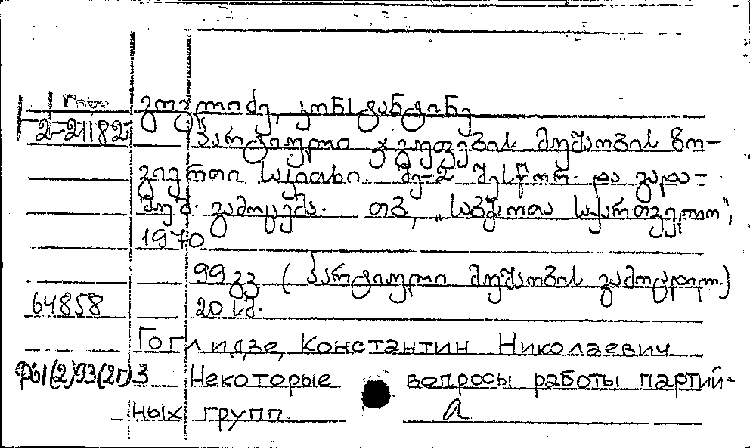 გოგლიძე, კონსტანტინე
2-21182 პარტიული ჯგუფების მუშაობის ზო-
გიერთი საკითხი. მე-2 შესწორ. და გადა-
მუშ. გამოცემა. თბ., „საბჭოთა საქართველო“,
1970
99 გვ. (პარტიული მუშაობის გამოცდილ.)
64858 20 სმ.
Гоглидзе, Константин Николаевич
Некоторые вопросы работы партий-
ных групп. а